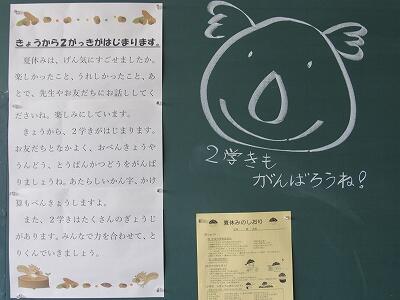 きょうから2がっきがはじまります。
夏休みは、げん気にすごせましたか。
楽しかったこと、うれしかったこと、あ
とで、先生やお友だちにお話ししてく
ださいね。楽しみにしています。
きょうから、2学きがはじまります。
お友だちとなかよく、おべんきょうや
うんどう、とうばんかつどうをがんば
りましょうね。あたらしいかん字、かけ
算もべんきょうしますよ。
また、2学きはたくさんのぎょうじ
があります。みんなで力を合わせて、と
りくんでいきましょう。
2学きも
がんばろうね!
夏休みのしおり